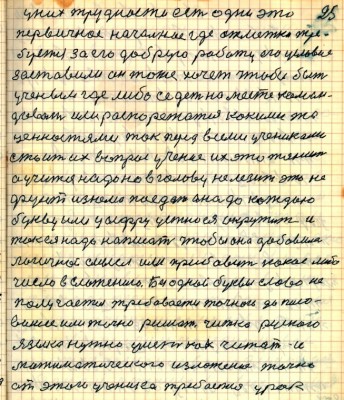 у них трудность ест одни это 95
первичное началное где отметка тре-
буется за его добрую работу его целевие
заставили он тоже хочет чтобы быт
ученым где либо седет на месте коман-
доват или распорежатся какими то
ценностями так перед всеми учениками
стоит их вопрос учение их это тянит
а учится надо но в голову не лезит это не
фрукт изюма поедат она до каждою
букву или цыфру устно
также надо написат чтобы она добавила
логичной смысл или прибавит какое либо
число в слжению. Быодной буквы слово не
получается требавается точност до писо-
вание или точно решат, читка руского
языка нужно умет как читат и
матиматического изложения точно
от этого ученика требается урок